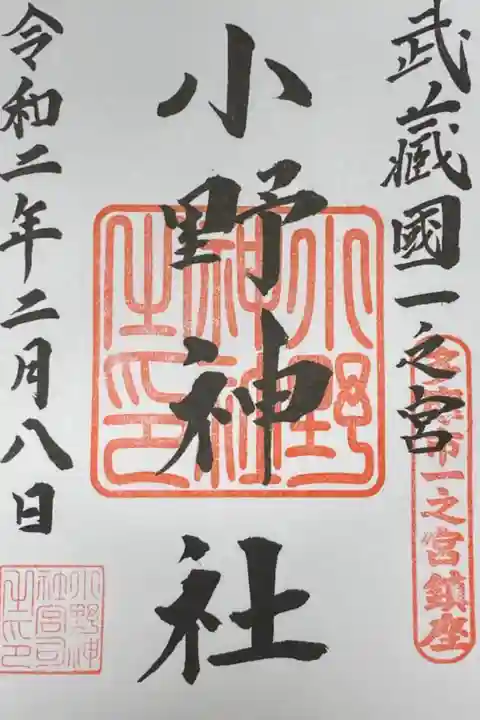 武蔵國一之宮
多摩市一之宮鎮座
小野神社
小野神社之印
令和二年二月八日
小野神社宮司之印